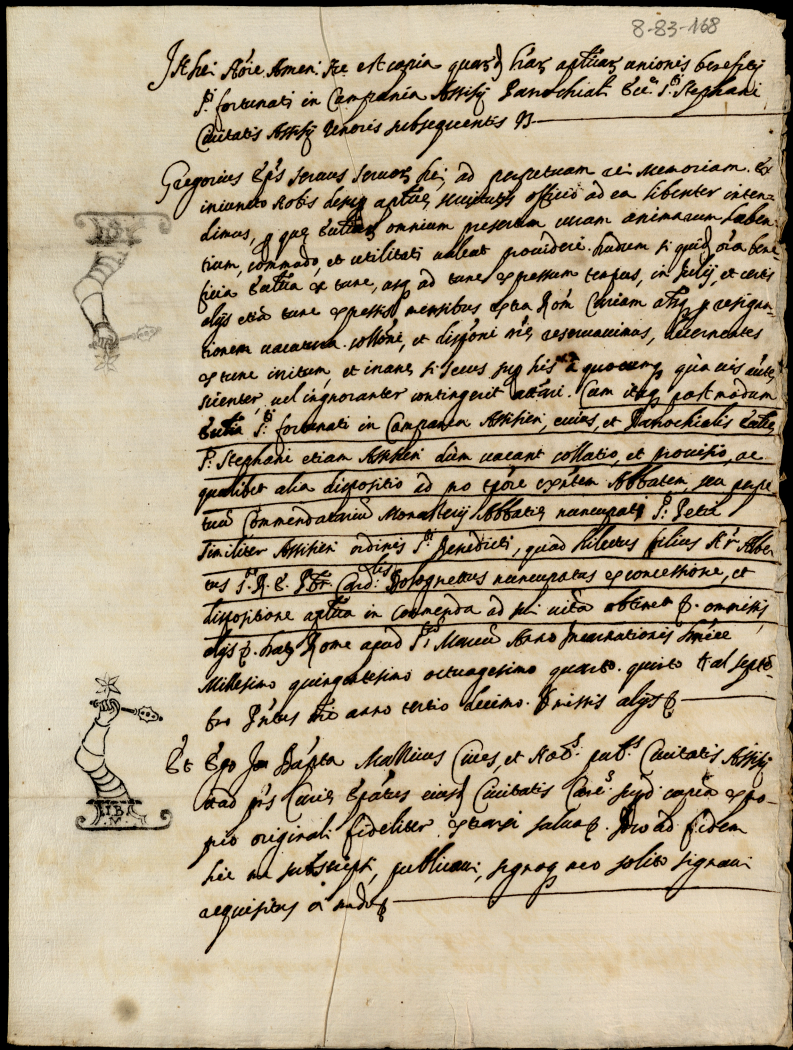 8-83-168
In Dei Nõie Amen. hec est copia quarũd lrãr aptlicar unionis benefitij
S.ti fortunati in Campanea Assisij Parochiali Ecc.e S.ti Stephani
Civitatis Assisij tenoris subsequentis Vz
Gregorius Ep̃s servus servor Dei, ad perpetuam rei Memoriam. Ex
iniuncto Nobis desup aptlice servitutis officio ad ea libenter inten=
dimus, p que Ecclesiar omnium presertim curam animarum haben
tium, commodo, et utilitati valeat provideri. Dudum si quid oĩa bene
ficia Ecctica ex tunc, usq ad tunc expressum tempus, in Julij, et certis
alijs etiã tunc expressis mensibus extra Rom̃ Curiam alias p resigna-
tionem vacatura collõni, et disp̃oni nr̃e reservavimus, decernentes
ex tunc irritum, et inane si secus sup his à quocumq quavis aucte
scienter, vel ingnoranter contingerit attari. Cum itaq postmodum
Ecctia S.ti fortunati in Campanea Assisien, cuius, et Parochialis Ecctie
S.ti Stephani etiam Assisien dum vacant collatio, et provisio, ac
quelibet alia dispositio ad pro tpõre exñtem Abbatem, seu perpe
tuũ Commendatariũ Monasterij Abbatie nuncupati S.ti Petri
similiter Assisien ordinis S.ti Benedicti, quod Dilectus filius Nr̃ Alber
tus S. R. E. Pbr Card.lis Bolognettus nuncupatus ex concessione, et
dispositione aptlica in Commenda ad sui vitã obtinet &. ommissis
alijs &. Dat Rome apud S. Marcũ Anno Incarnationis Dñice
Millesimo quingentesimo octuagesimo quarto. quinto Kal septẽ-
bro Pontus nr̃i anno tertio decimo. Omissis alijs &
Et Ego Jo: Bapta Mallius Cives, et Not.s pub.s Civitatis Assisij
et ad p̃ns Curie Ep̃atus eiusd Civitatis Canc.s supd copiã ex pro-
prio originali fideliter extraxi salua &. Ideo ad fidem
hic me subscripsi, publicavi, signoq meo solito signavi
requisitus oĩ modo &
I B
M